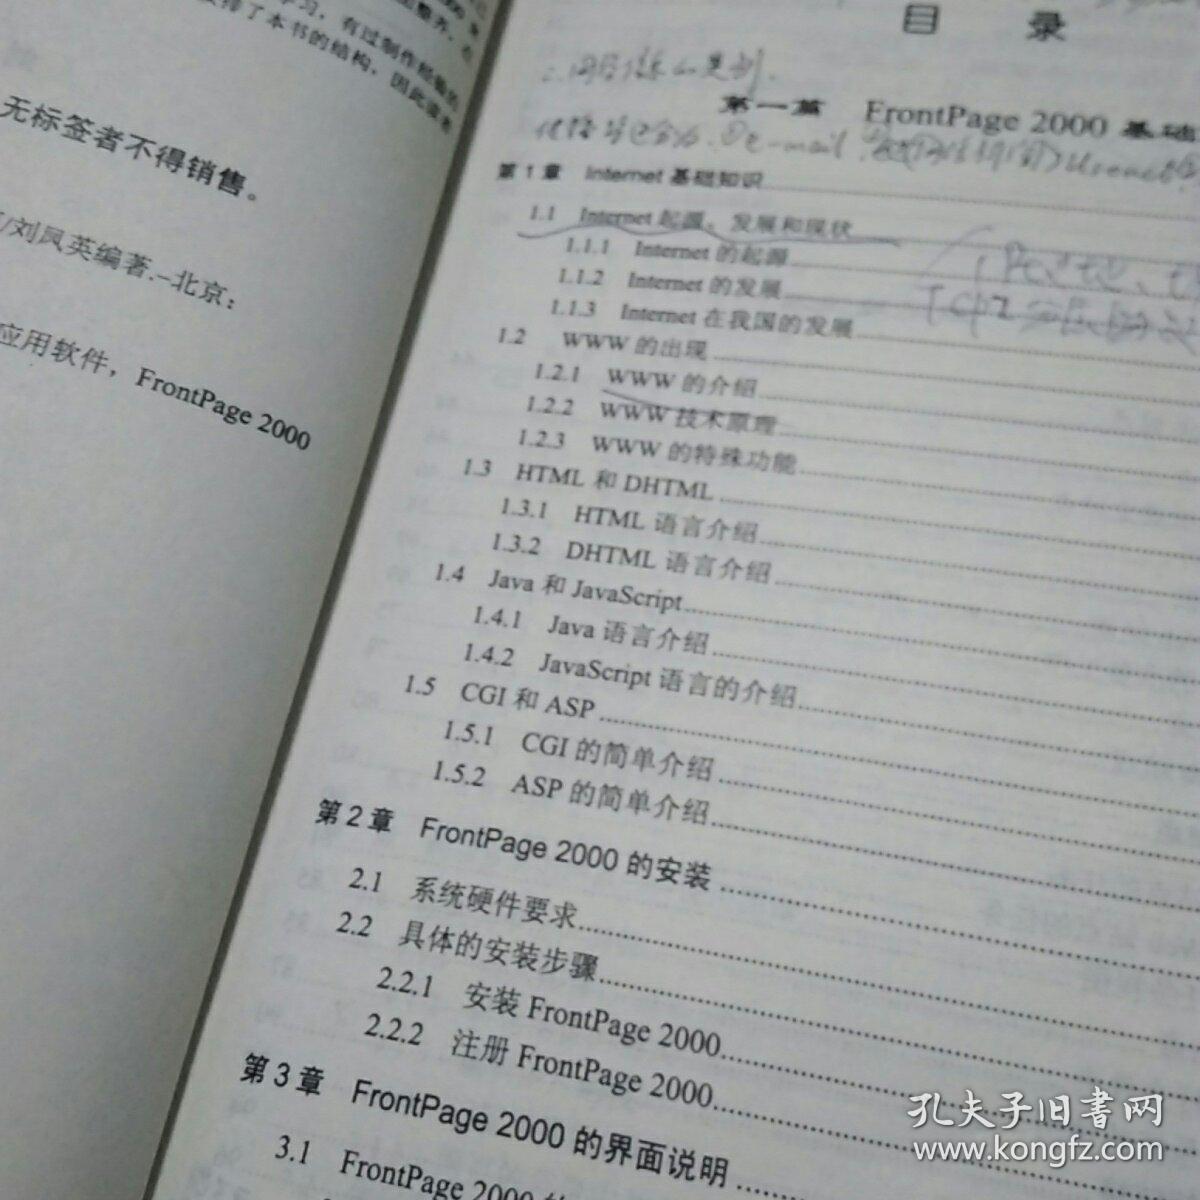 无标签者不得销售。
/刘凤英编著.–北京：
应用软件，FrontPage 2000
目 录
第一篇 FrontPage 2000 基础
第1章 Internet 基础知识
1.1 Internet 起源、发展和现状
1.1.1 Internet 的起源
1.1.2 Internet 的发展
1.1.3 Internet 在我国的发展
1.2 WWW 的出现
1.2.1 WWW 的介绍
1.2.2 WWW 技术原理
1.2.3 WWW 的特殊功能
1.3 HTML 和 DHTML
1.3.1 HTML 语言介绍
1.3.2 DHTML 语言介绍
1.4 Java 和 JavaScript
1.4.1 Java 语言介绍
1.4.2 JavaScript 语言的介绍
1.5 CGI 和 ASP
1.5.1 CGI 的简单介绍
1.5.2 ASP 的简单介绍
第2章 FrontPage 2000 的安装
2.1 系统硬件要求
2.2 具体的安装步骤
2.2.1 安装 FrontPage 2000
2.2.2 注册 FrontPage 2000
第3章 FrontPage 2000 的界面说明
3.1 FrontPage 2000 的
孔夫子旧书网
www.kongfz.com